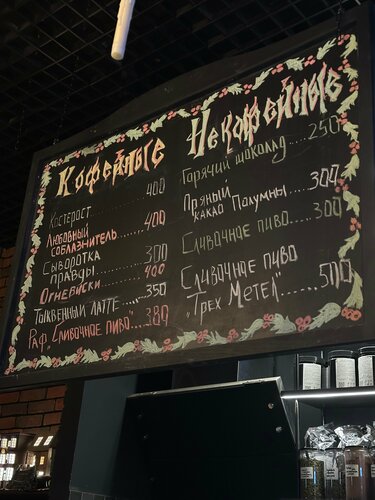 Кофейные
Костерост 400
Любовный
соблазнитель.......400
Сыворотка
правды..........300
Огневиски........400
Тыквенный латте....350
Раф „Сливочное пиво"...380
Некофейные
Горячий шоколад....250
Пряный
какао Полумны....300
Сливочное пиво....300
Сливочное пиво
„Трех Метел"......500